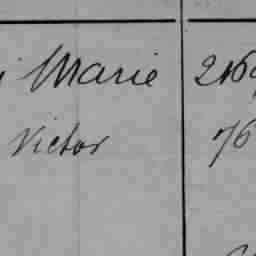 Marie 216
Victor 76